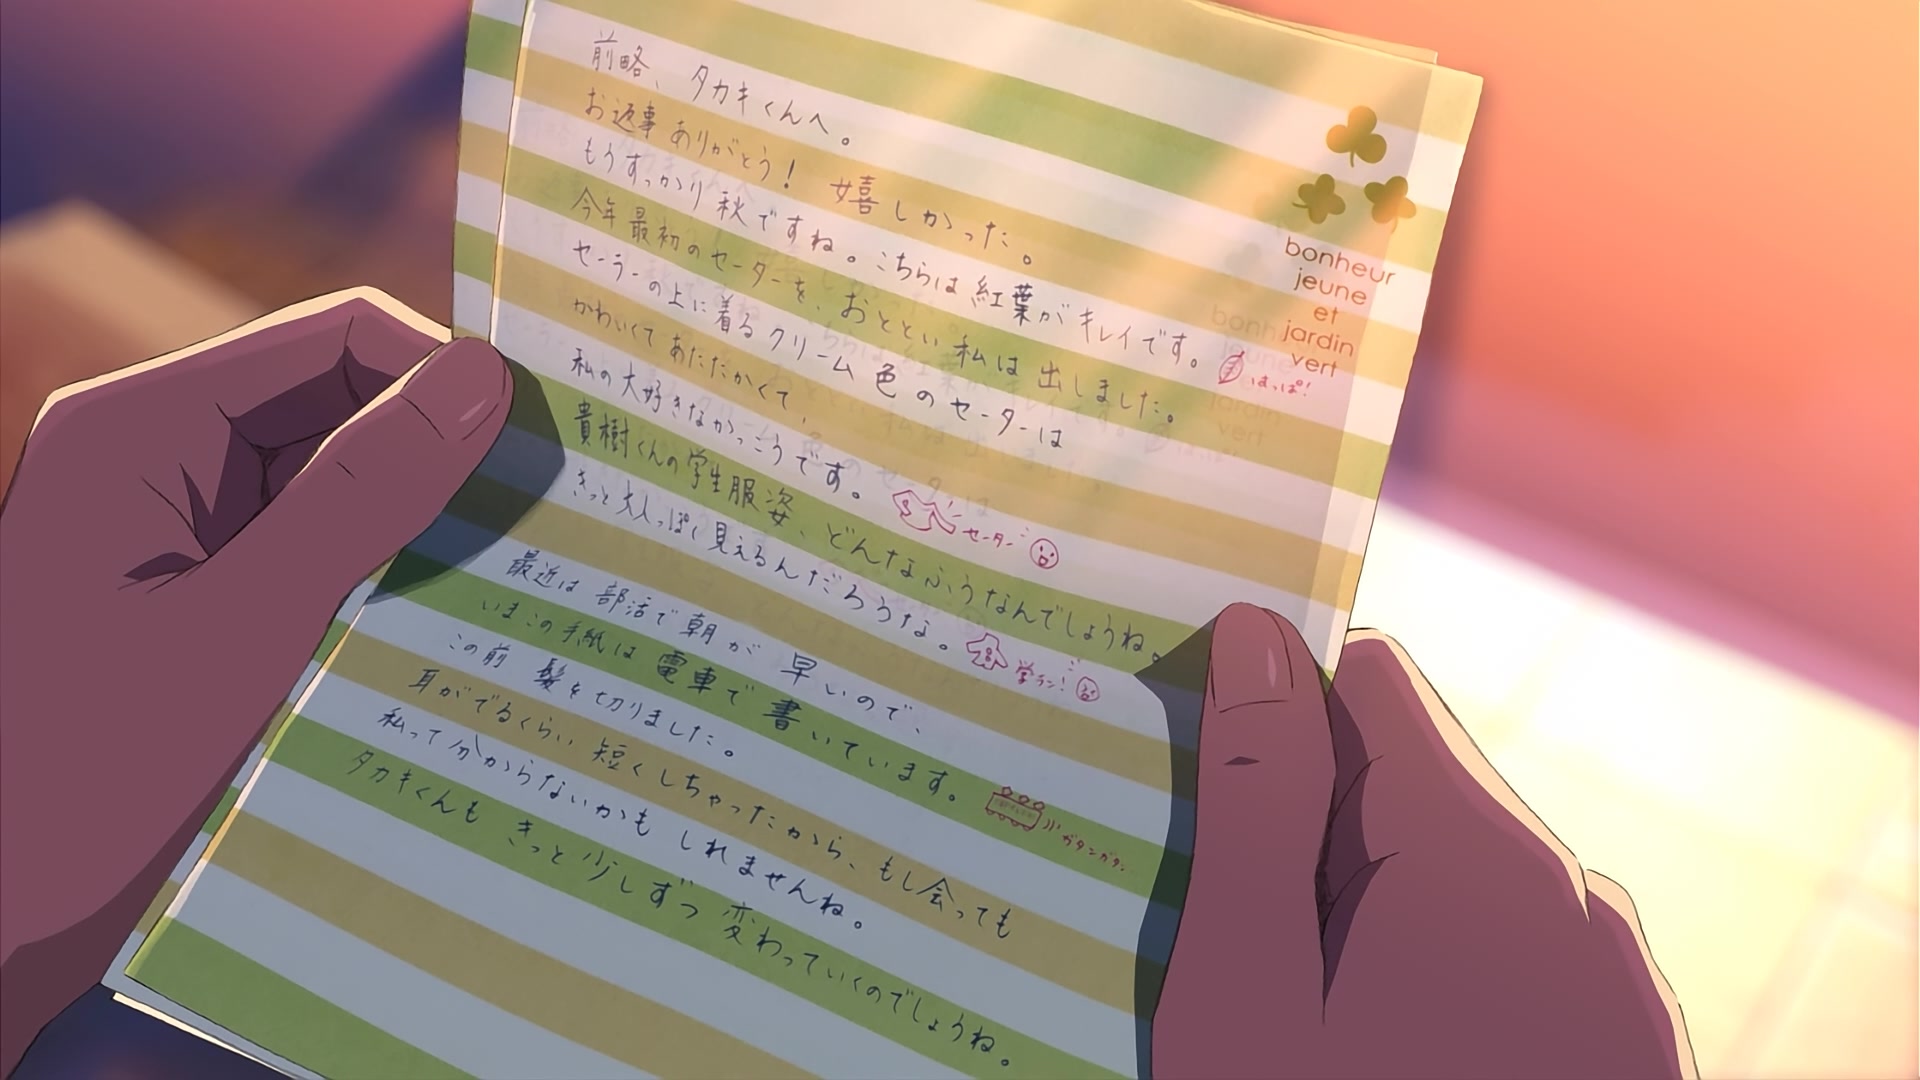 前略、タカキくんへ。
お返事ありがとう! 嬉しかった。
もうすっかり秋ですね。こちらは紅葉がキレイです。
はっぱ!
今年最初のセーターを、おととい私は出しました。
セーラーの上に着るクリーム色のセーターは
かわいくてあたたかくて、
私の大好きなかっこうです。
セーター
貴樹くんの学生服姿、どんなふうなんでしょうね。
きっと大人っぽく見えるんだろうな。
学ラン!
最近は部活で朝が早いので、
いまこの手紙は電車で書いています。
ガタンガタン
この前髪を切りました。
耳がでるくらい短くしちゃったから、もし会っても
私って分からないかもしれませんね。
タカキくんもきっと少しずつ変わっていくのでしょうね。
bonheur
jeune
et
jardin
vert